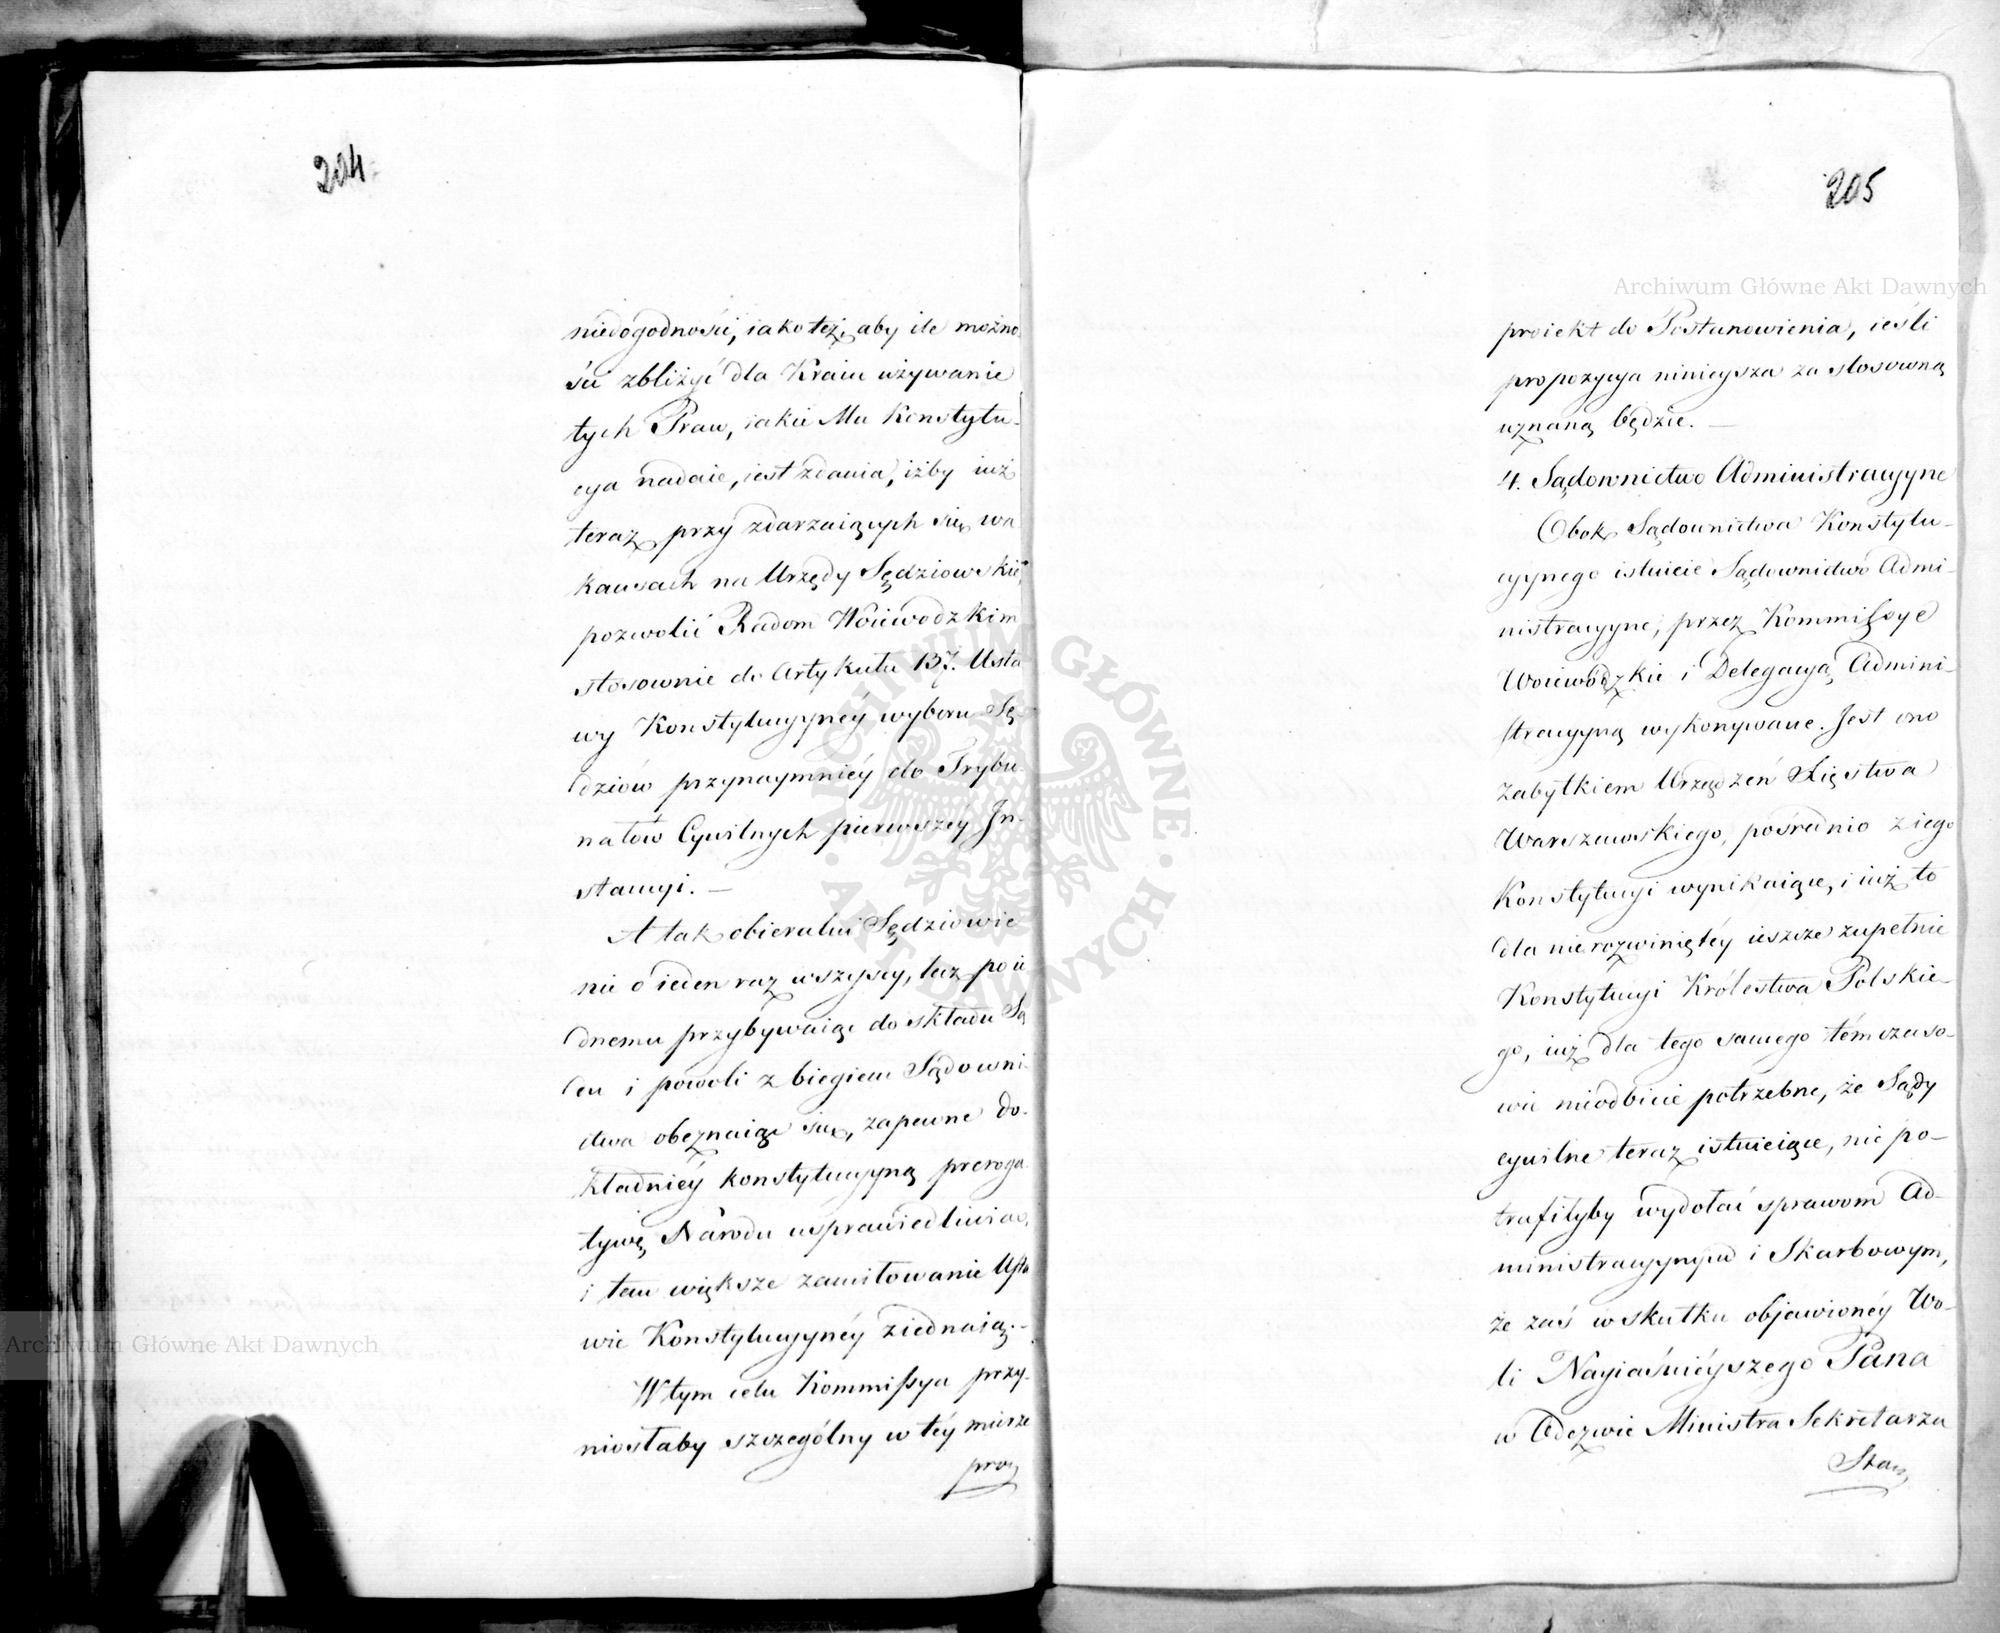 204.
niedogodności, iako też, aby ile możno-
ści zbliżyć dla Kraiu używanie
tych Praw, iakie Mu Konstytu-
cya nadaie, iest zdania, iżby iuż
teraz przy zdarzaiących się wa
kansach na Urzędy Sędziowskie,
pozwolić Radom Woiewodzkim
stosownie do Artykułu 137. Usta
wy Konstytucyyney wyboru Sę-
dziów przynaymniéy do Trybu-
nałów Cywilnych pierwszéy In-
stancyi. —
A tak obieralni Sędziowie
nie o ieden raz wszyscy, lecz po ie
dnemu przybywaiąc do składu Są
du i powoli z biegiem Sądowni-
ctwa obeznaiąc się, zapewne do-
kładniéy konstytucyyną preroga-
tywę Narodu usprawiedliwiać,
i tem większe zamiłowanie Usta
wie Konstytucyynéy ziednaią. —
W tym celu Kommissya przy-
niosłaby szczególny w téy mierze
proi
205
proiekt do Postanowienia, ieśli
propozycya ninieysza za stosowną
uznaną będzie. —
4. Sądownictwo Administracyyne
Obok Sądownictwa Konstytu-
cyynego istnieie Sądownictwo Admi-
nistracyyne, przez Kommissye
Woiewódzkie i Delegacyą Admini-
stracyyną wykonywane. Jest ono
zabytkiem Urządzeń Xięstwa
Warszawskiego, pośrednio z iego
Konstytucyi wynikaiące, i iuż to
dla nierozwiniętéy ieszcze zupełnie
Konstytucyi Królestwa Polskie-
go, iuż dla tego samego témczaso-
wie nieodbicie potrzebne, że Sądy
cywilne teraz istnieiące, nie po-
trafiłyby wydołać sprawom Ad-
ministracyynym i Skarbowym,
że zaś w skutku objawionéy Wo-
li Nayiaśniéyszego Pana
w Odezwie Ministra Sekretarza
Stanu
Archiwum Główne Akt Dawnych
Archiwum Główne Akt Dawnych
ARCHIWUM GŁÓWNE · AKT DAWNYCH ·